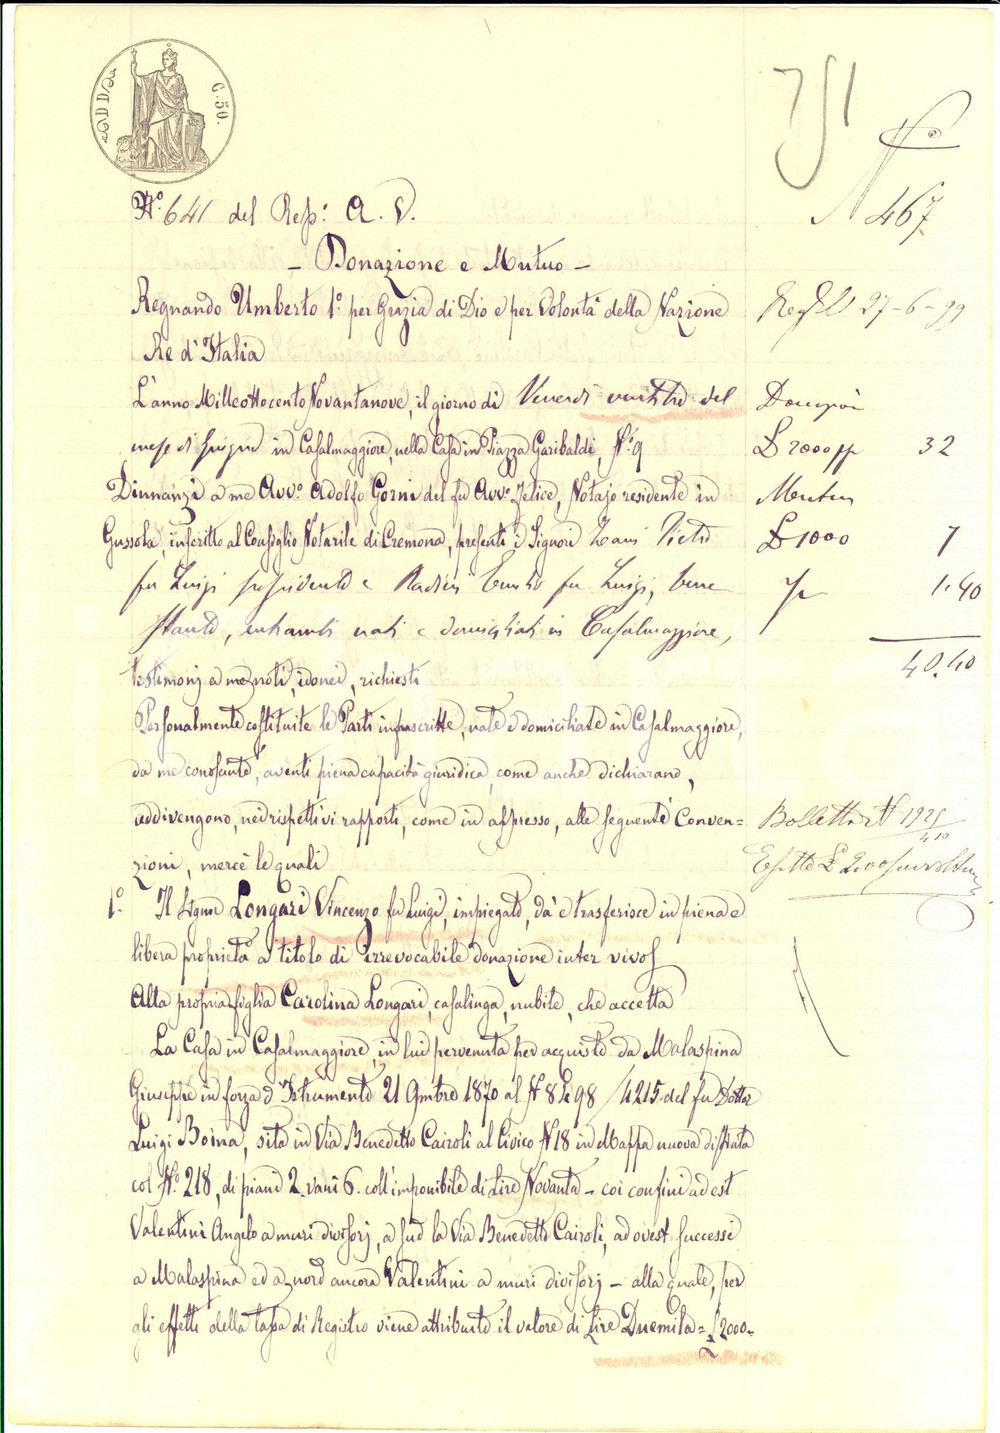 C. 50.
N.° 641 del Rep: A. V.
N° 467
- Donazione e Mutuo -
Regnando Umberto 1.° per Grazia di Dio e per Volontà della Nazione
27-6-99
Re d'Italia
L'anno Milleottocento Novantanove, il giorno di Venerdì ventitre del
mese di Giugno in Casalmaggiore, nella Casa in Piazza Garibaldi, N.° 9
£ 2000 32
Dinnanzi a me Avv.° Adolfo Gorni del fu Avv.° Felice, Notajo residente in
Mutuo
Gussola, inscritto al Consiglio Notarile di Cremona, presenti i Signori Zani Pietro
£ 1000 7
fu Luigi possidente e fu Luigi, bene
1.40
stante, entrambi nati e domiciliati in Casalmaggiore,
40.40
testimonj a me noti, idonei, richiesti
Personalmente costituite le Parti infrascritte, nate e domiciliate in Casalmaggiore,
da me conosciute, aventi piena capacità giuridica, come anche dichiarano,
addivengono, nei rispettivi rapporti, come in appresso, alle seguenti Conven=
Bolletta N 1925
zioni, mercè le quali
1.° Il Signor Longari Vincenzo fu Luigi, impiegato, dà e trasferisce in piena e
libera proprietà a titolo di irrevocabile donazione inter vivos
Alla propria figlia Carolina Longari, casalinga, nubile, che accetta
La Casa in Casalmaggiore, in lui pervenuta per acquisto da Malaspina
Giuseppe in forza d'Istrumento 21 9mbre 1870 al N 8498/4215 del fu Dottor
Luigi Boina, sita in Via Benedetto Cairoli al Civico N 18 in Mappa nuova distinta
col N.° 218, di piani 2. vani 6. coll'imponibile di Lire Novanta - coi confini ad est
Valentini Angelo a muri divisorj, a sud la Via Benedetto Cairoli, ad ovest successi
a Malaspina ed a nord ancora Valentini a muri divisorj - alla quale, per
gli effetti della tassa di Registro viene attribuito il valore di Lire Duemila = £ 2000 =